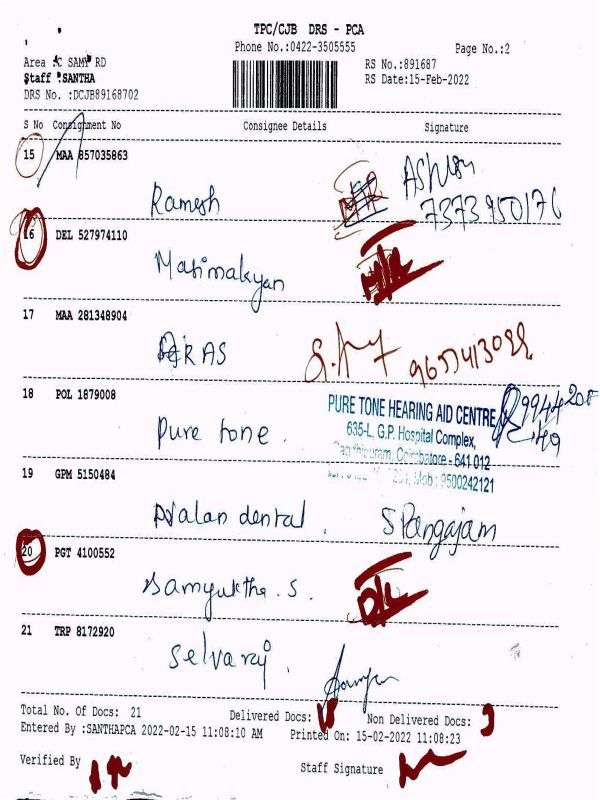 TPC/CJB DRS - PCA
Phone No.:0422-3505555
Page No.:2
Area :C SAMY RD
RS No.:891687
Staff :SANTHA
RS Date:15-Feb-2022
DRS No. :DCJB89168702
S No Consignment No Consignee Details Signature
15 MAA 857035863
Ramesh
7373950176
16 DEL 527974110
17 MAA 281348904
18 POL 1879008
PURE TONE HEARING AID CENTRE
635-L, G.P. Hospital Complex,
Gandhipuram, Coimbatore - 641 012
Mob : 9500242121
Pure tone.
19 GPM 5150484
dental. S Pangajam
20 PGT 4100552
Samyuktha. S.
21 TRP 8172920
Selvaraj.
Total No. Of Docs: 21 Delivered Docs: Non Delivered Docs:
Entered By :SANTHAPCA 2022-02-15 11:08:10 AM Printed On: 15-02-2022 11:08:23
Verified By
Staff Signature